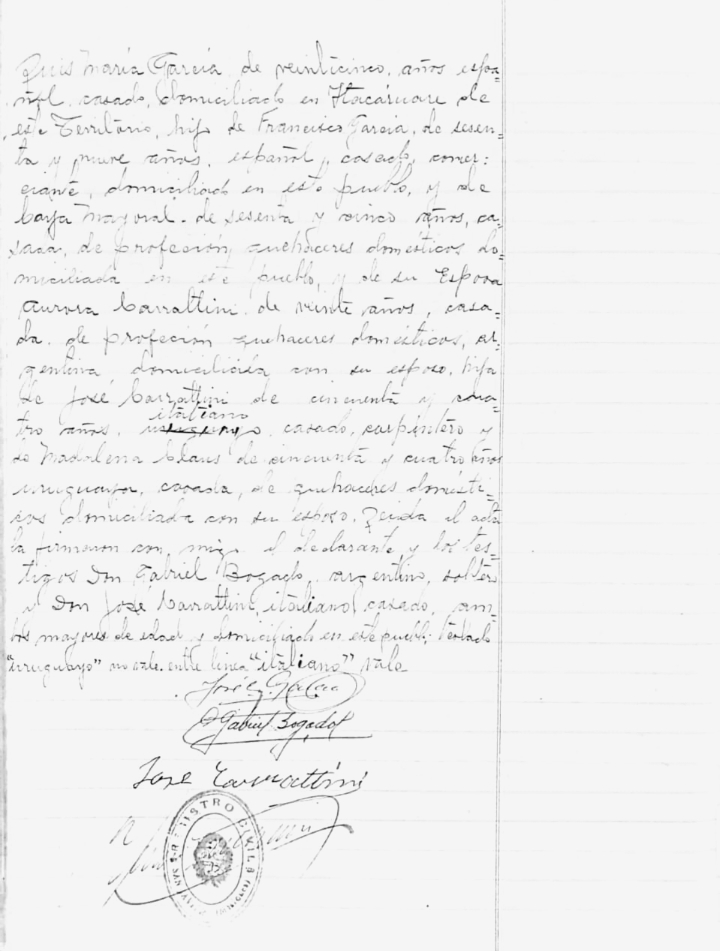 Luis María García, de veinticinco, años espa=
ñol, casado, domiciliado en Itacáruare de
este Territorio, hijo de Francisco García, de sesen=
ta y nueve años, español, casado, comer=
ciante, domiciliado en este pueblo, y de
Mayoral. de sesenta y cinco años, ca=
sada, de profeción quehaceres domésticos do=
miciliada en este pueblo, y de su Esposa
Aurora Carrattini. de veinte años, casa=
da. de profeción quehaceres domésticos, ar=
gentina domiciliada con su esposo. hija
de José Carrattini de cincuenta y cua=
italiano
tro años. uruguayo, casado, carpintero y
de Madalena Claus de cincuenta y cuatro años
uruguaya, casada, de quehaceres domésti=
cos domiciliada con su esposo. Leida el acta
la firmaron con migo el declarante y los tes=
tigos Don Gabriel Bogado, argentino, soltero
y Don José Carrattini, italiano, casado, am=
bos mayores de edad y domiciliado en este pueblo; testado
"uruguayo" no vale. entre linea "italiano" vale
José G. García
Gabriel Bogado
José Carrattini
REGISTRO CIVIL